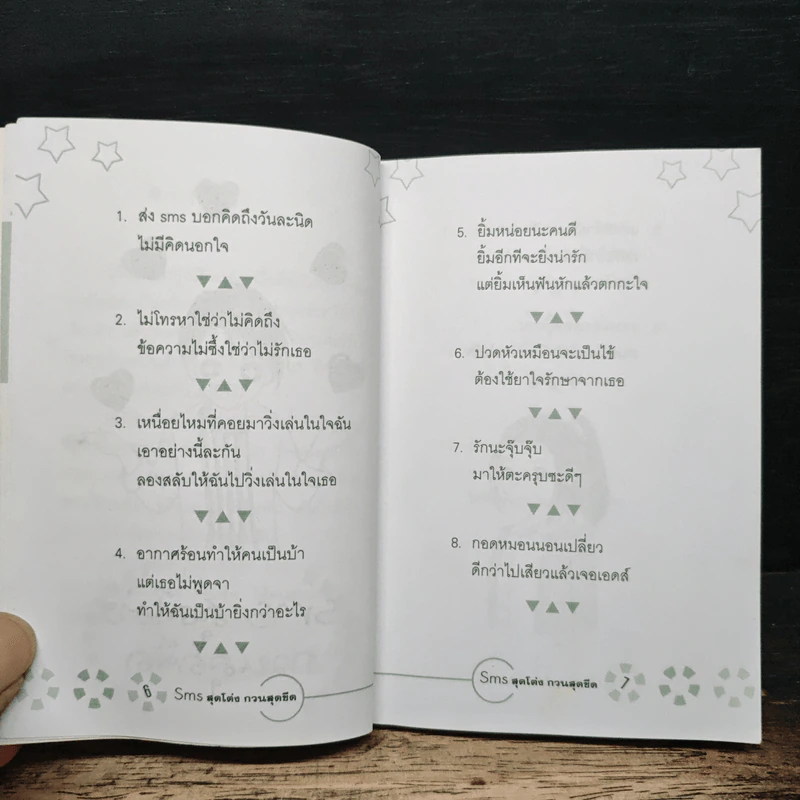 1. ส่ง sms บอกคิดถึงวันละนิด
ไม่มีคิดนอกใจ
2. ไม่โทรหาใช่ว่าไม่คิดถึง
ข้อความไม่ซึ้งใช่ว่าไม่รักเธอ
3. เหนื่อยไหมที่คอยมาวิ่งเล่นในใจฉัน
เอาอย่างนี้ละกัน
ลองสลับให้ฉันไปวิ่งเล่นในใจเธอ
4. อากาศร้อนทำให้คนเป็นบ้า
แต่เธอไม่พูดจา
ทำให้ฉันเป็นบ้ายิ่งกว่าอะไร
6 Sms สุดโต่ง กวนสุดขีด
5. ยิ้มหน่อยนะคนดี
ยิ้มอีกทีจะยิ่งน่ารัก
แต่ยิ้มเห็นฟันหักแล้วตกกะใจ
6. ปวดหัวเหมือนจะเป็นไข้
ต้องใช้ยาใจรักษาจากเธอ
7. รักนะจุ๊บจุ๊บ
มาให้ตะครุบซะดีๆ
8. กอดหมอนนอนเปลี่ยว
ดีกว่าไปเสียวแล้วเจอเอดส์
Sms สุดโต่ง กวนสุดขีด 7